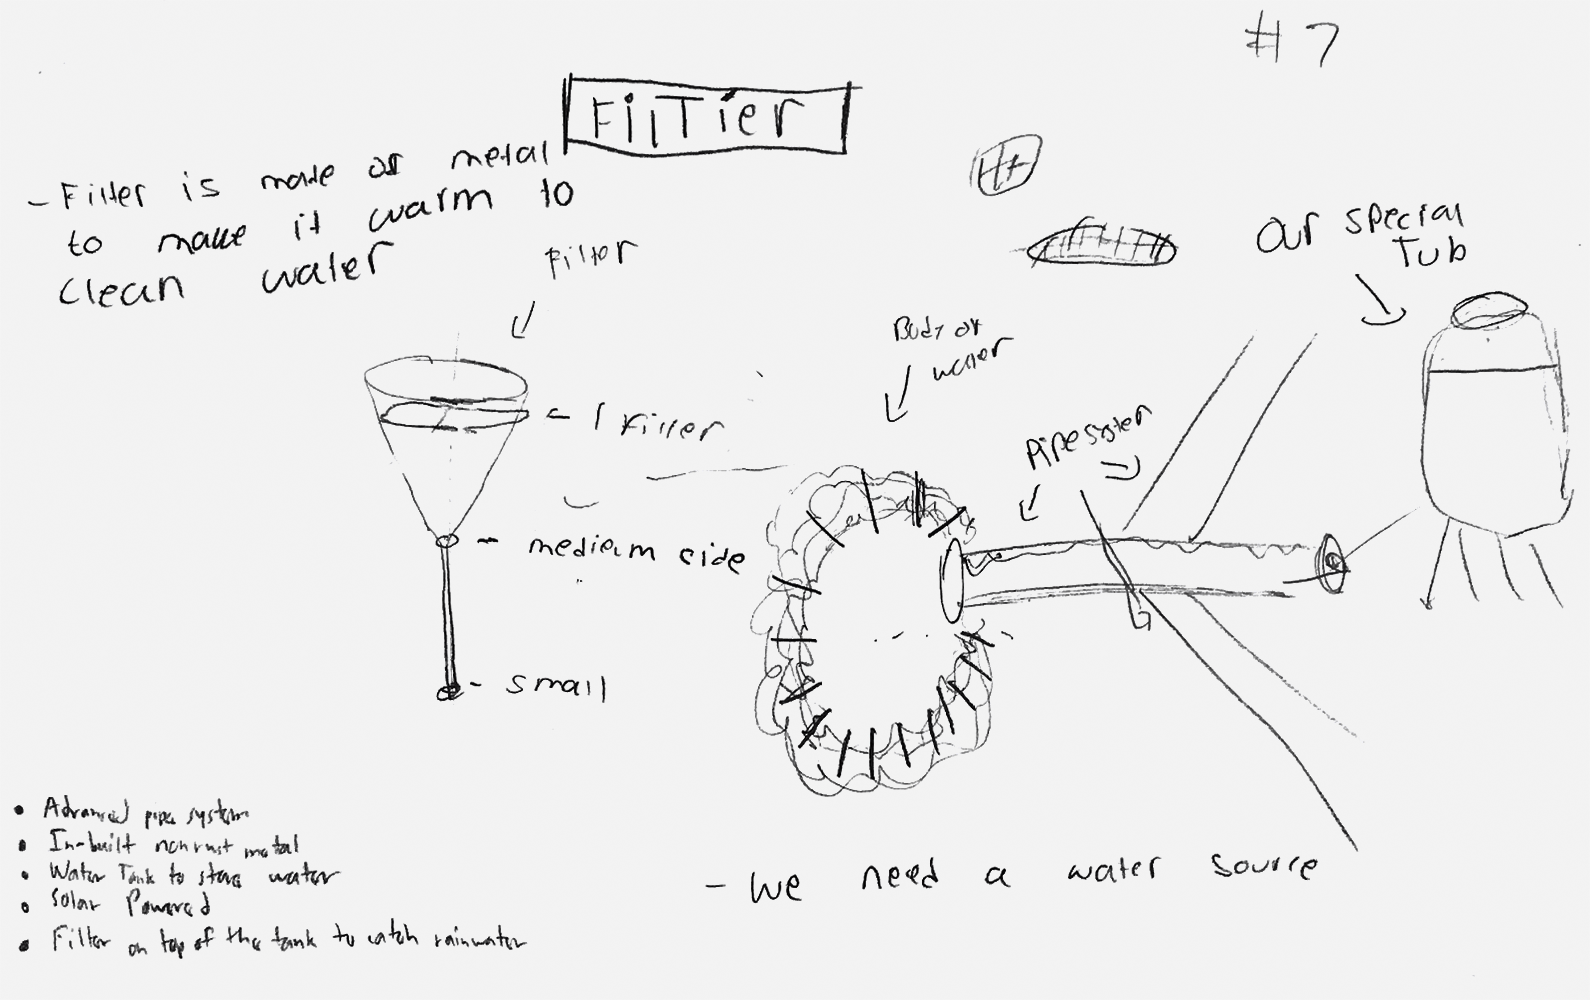 # 7
FilTier
- Filter is made of metal
to make it warm to
clean water
Filter
our special
Tub
Body of
water
- 1 Filter
Pipe system
- medium side
- small
• Advanced pipe system
• In-built nonrust metal
• Water Tank to store water
• Solar Powered
• Filter on top of the tank to catch rainwater
- we need a water source